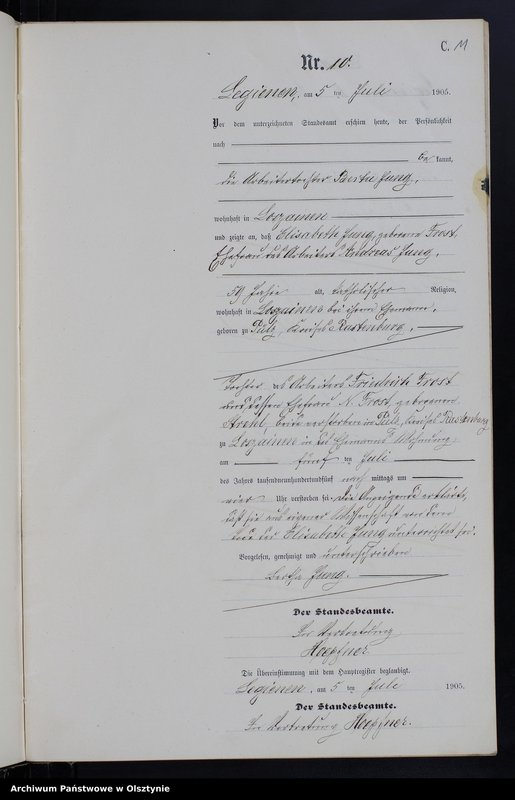 C. M
Nr. 10.
Legienen, am 5 ten Juli 1905.
Vor dem unterzeichneten Standesamt erschien heute, der Persönlichkeit
nach
be kannt,
die Arbeitertochter Bertha Jung,
wohnhaft in Loszainen
und zeigte an, daß Elisabeth Jung, geborene Frost,
Ehefrau des Arbeiters Andreas Jung,
59 Jahre alt, katholischer Religion,
wohnhaft in Loszainen bei ihrem Ehemann,
geboren zu Pülz, Kreises Rastenburg,
Tochter des Arbeiters Friedrich Frost
und dessen Ehefrau N. Frost, geborenen
beide verstorben in Pülz, Kreises Rastenburg
zu Loszainen in des Ehemanns Wohnung
am fünf ten Juli
des Jahres tausendneunhundertundfünf nach mittags um
vier Uhr verstorben sei. Die Anzeigende erklärte,
daß sie aus eigener Wissenschaft von dem
Tode der Elisabeth Jung unterrichtet sei.
Vorgelesen, genehmigt und unterschrieben
Bertha Jung.
Der Standesbeamte.
In Vertretung
Hoepfner.
Die Übereinstimmung mit dem Hauptregister beglaubigt.
Legienen, am 5 ten Juli 1905.
Der Standesbeamte.
In Vertretung Hoepfner.
Archiwum Państwowe w Olsztynie